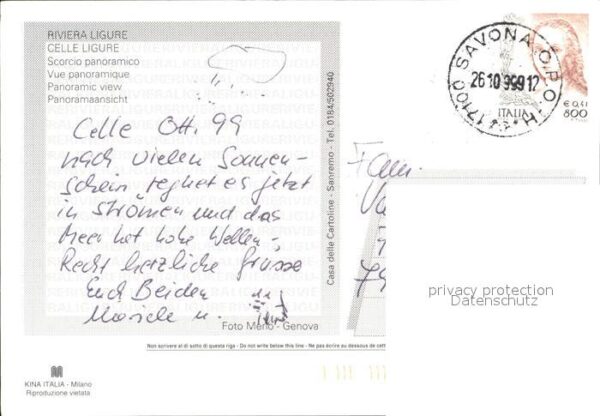 RIVIERA LIGURE
CELLE LIGURE
Scorcio panoramico
Vue panoramique
Panoramic view
Panoramaansicht
Celle Ott. 99
nach vielen Sonnen-
schein regnet es jetzt
in Strömen und das
Meer hat hohe Wellen.
Recht herzliche Grüsse
Euch Beiden
u.
Foto Merlo - Genova
Casa delle Cartoline - Sanremo - Tel. 0184/502940
17100 SAVONA C.P.O.
26 10 999 12
ITALIA
€ 0,41
800
Fam.
privacy protection
Datenschutz
Non scrivere al di sotto di questa riga - Do not write below this line - Ne pas écrire au dessous de cett
KINA ITALIA - Milano
Riproduzione vietata